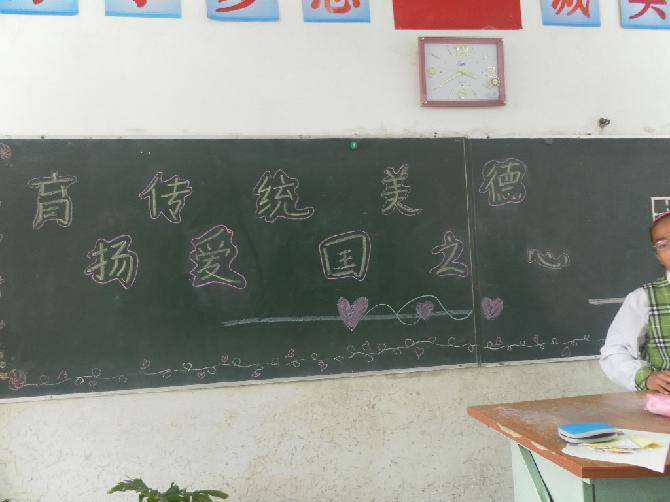 育传统美德
扬爱国之心